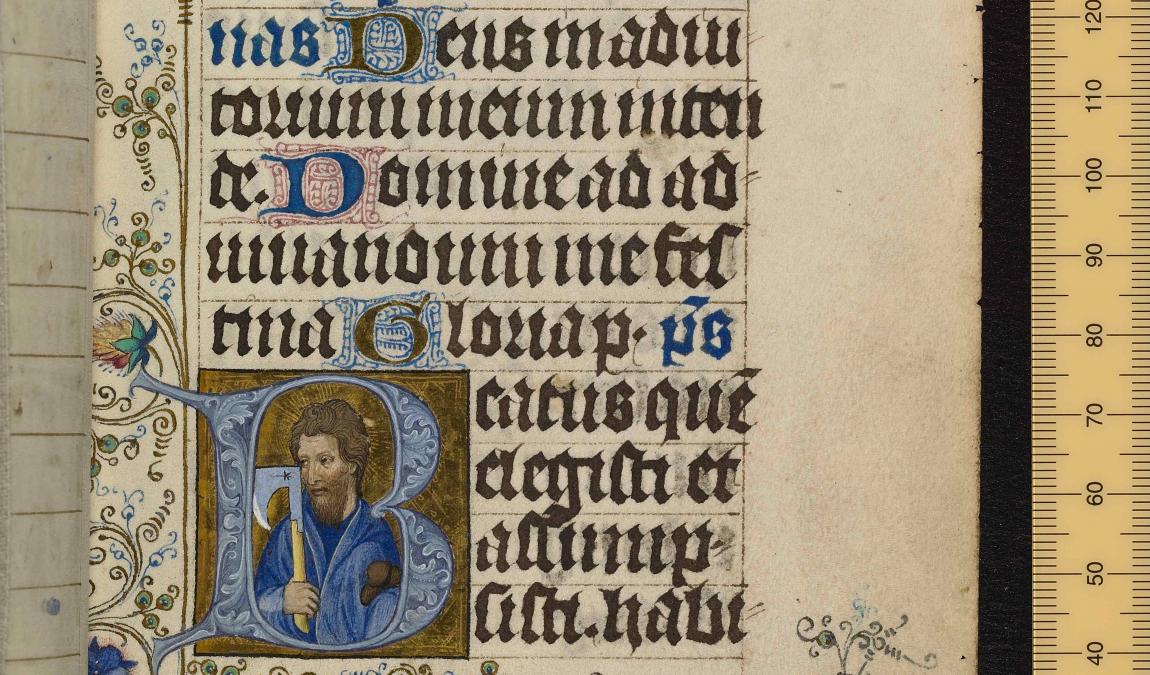 nas Deus in adiu
torium meum inten
de. Domine ad ad-
iuuandum me fes
tina Gloria p. p̄s
Beatus quē
elegisti et
assump-
sisti. habi-
120
110
100
90
80
70
60
50
40